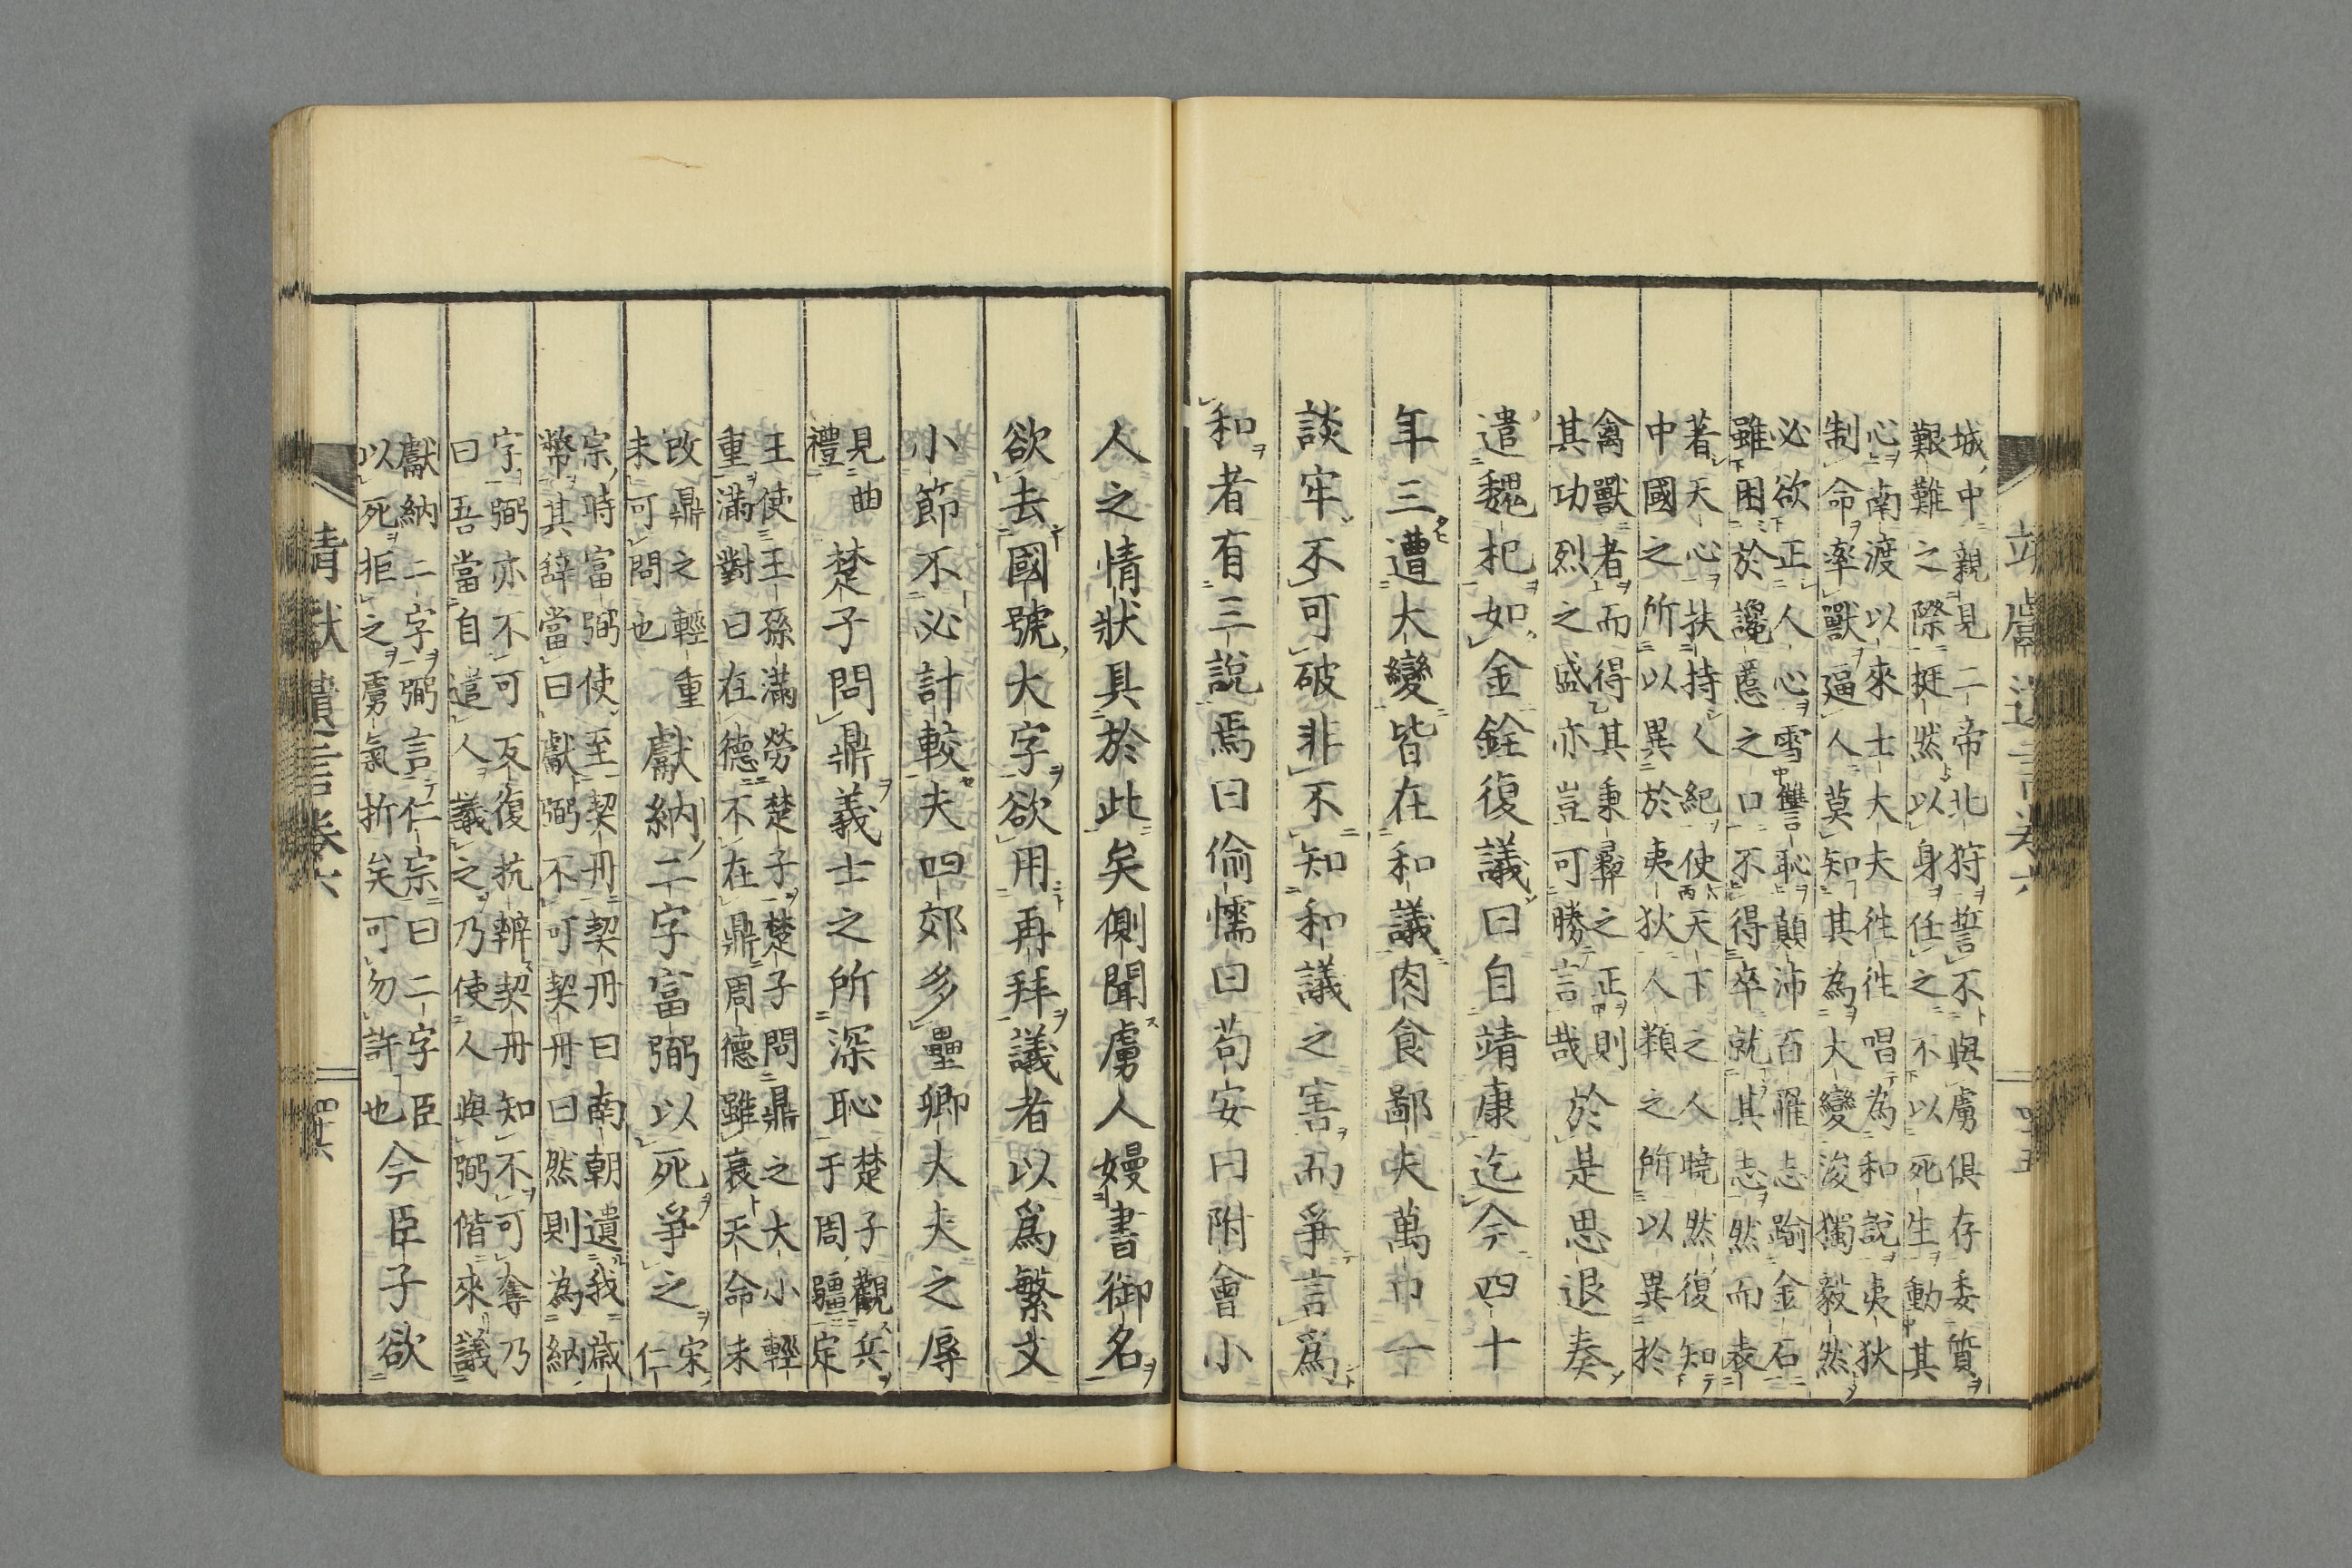 城中親見二帝北狩誓不與虜俱存委質
艱難之際挺然以身任之不以死生動其
心南渡以來士大夫徃徃唱為和說夷狄
制命率獸逼人莫知其為大變浚獨毅然
必欲正人心雪讐恥顛沛百罹志踰金石
雖困於讒慝之口不得卒就其志然而表
著天心扶持人紀使天下之人曉然復知
中國之所以異於夷狄人類之所以異於
禽獸者而得其秉彛之正則
其功烈之盛亦豈可勝言哉
於是思退奏
遣魏杞如金銓復議曰自靖康迄今四十
年三遭大變皆在和議肉食鄙夫萬口一
談牢不可破非不知和議之害而爭言爲
和者有三說焉曰偷懦曰苟安曰附會小
人之情狀具於此矣側聞虜人嫚書御名
欲去國號大字欲用再拜議者以爲繁文
小節不必計較夫四郊多壘卿大夫之辱
見曲
禮
楚子問鼎義士之所深恥
楚子觀兵
于周疆定
王使王孫滿勞楚子楚子問鼎之大小輕
重滿對曰在德不在鼎周德雖衰天命未
改鼎之輕重
未可問也
獻納二字富弼以死爭之
宋
仁
宗時富弼使至契丹契丹曰南朝遺我歲
幣其辭當曰獻弼不可契丹曰然則為納
字弼亦不可反復抗辨契丹知不可奪乃
曰吾當自遣人議之乃使人與弼偕來議
獻納二字弼言仁宗曰二字臣
以死拒之虜氣折矣可勿許也
今臣子欲
靖獻遺言卷六